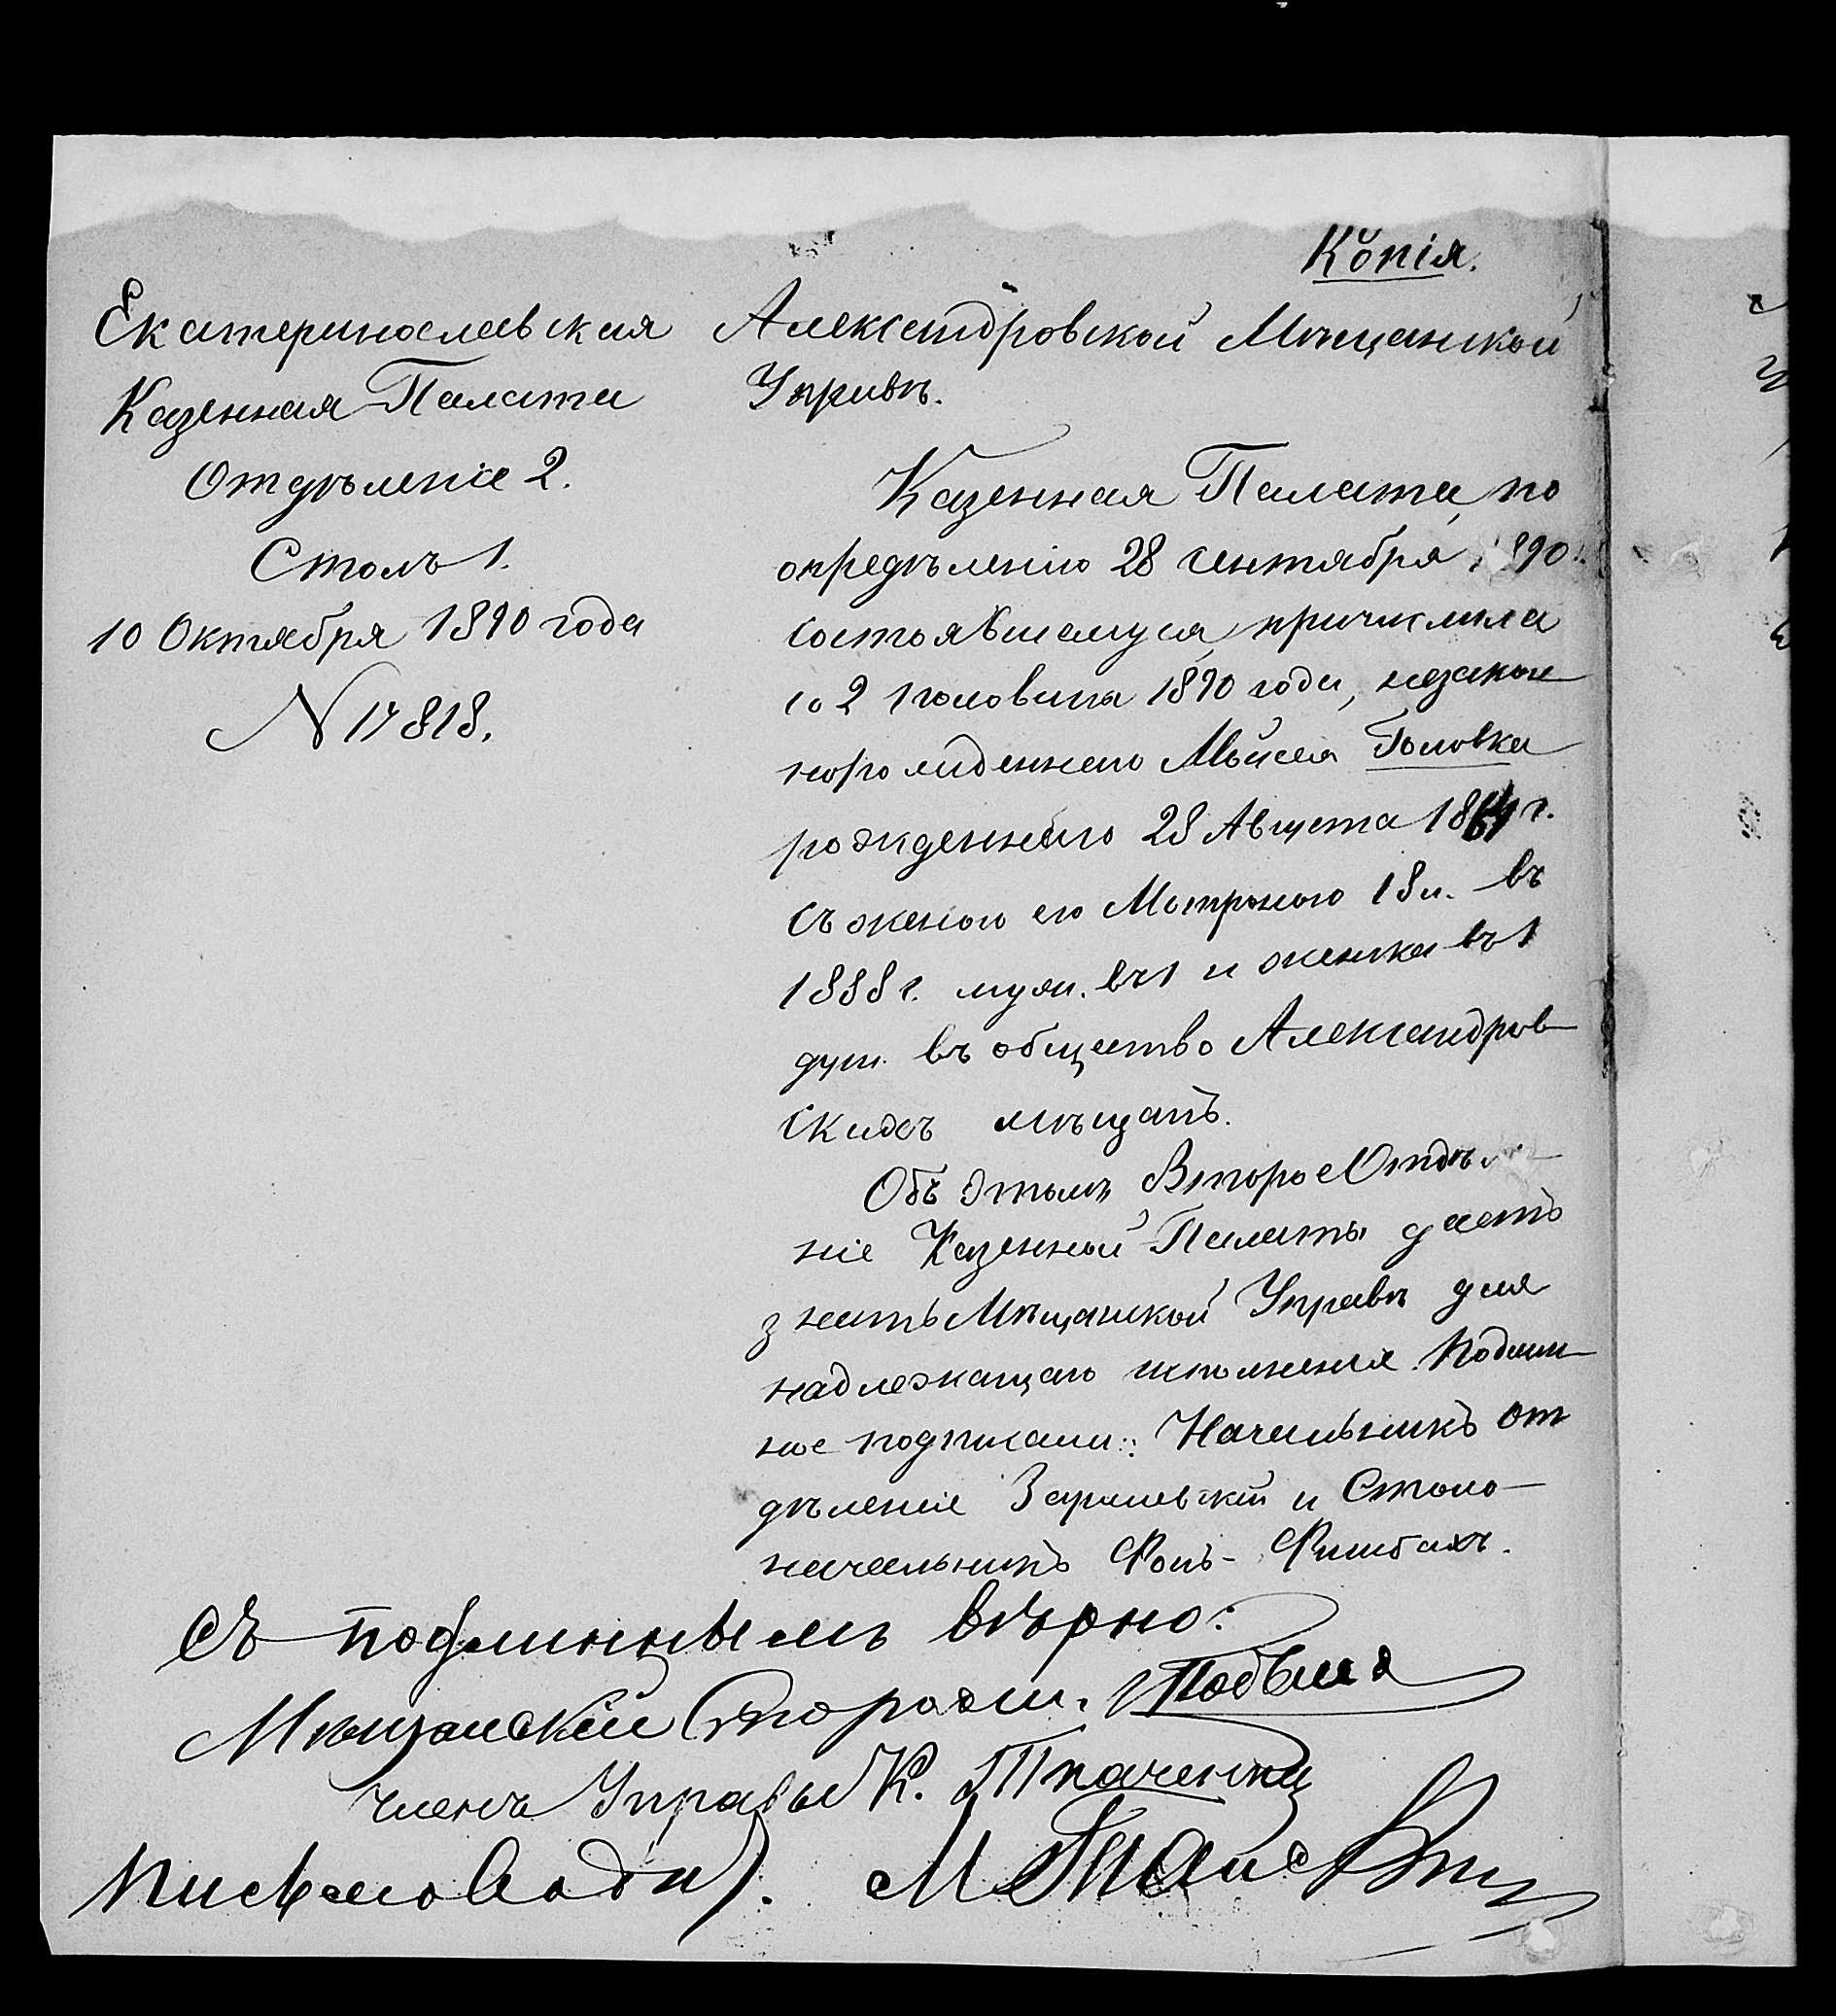 Копія.
Екатеринославская
Казенная Палата
Отдѣленіе 2.
Столъ 1.
10 Октября 1890 года
N 17818.
Александровской Мѣщанской
Управѣ.
Казенная Палата, по
опредѣленію 28 сентября 1890 г.
состоявшемуся, причислила
со 2 половины 1890 года, незакон
норожденнаго Моисея Головка
рожденнаго 28 Августа 1864 г.
съ женою его Матроною 18 л. въ
1888 г. муж. въ 1 и женска въ 1
душ. въ общество Александров-
скихъ мѣщанъ.
Объ этомъ Второе Отдѣле-
ніе Казенной Палаты даетъ
знать Мѣщанской Управѣ для
надлежащаго исполненія. Подлин-
ное подписали: Начальникъ От
дѣленія и Столо-
начальникъ Фонъ-Фишбахъ.
Съ подлиннымъ вѣрно:
Мѣщанскій Старош.
Членъ Управы К. Ткаченко
Письмоводит.